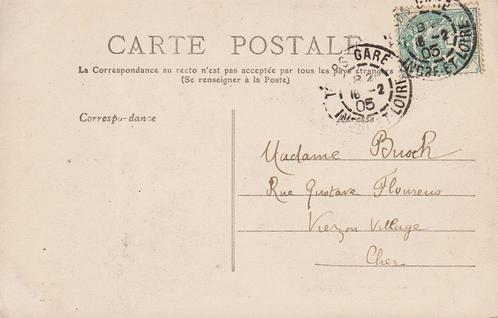 CARTE POSTALE
La Correspondance au recto n'est pas acceptée par tous les pays étrangers
(Se renseigner à la Poste)
TOURS GARE
16 -2
05
INDRE-ET-LOIRE
Correspondance
Adresse
Madame Busch
Rue Gustave Flourens
Vierzon Village
Cher